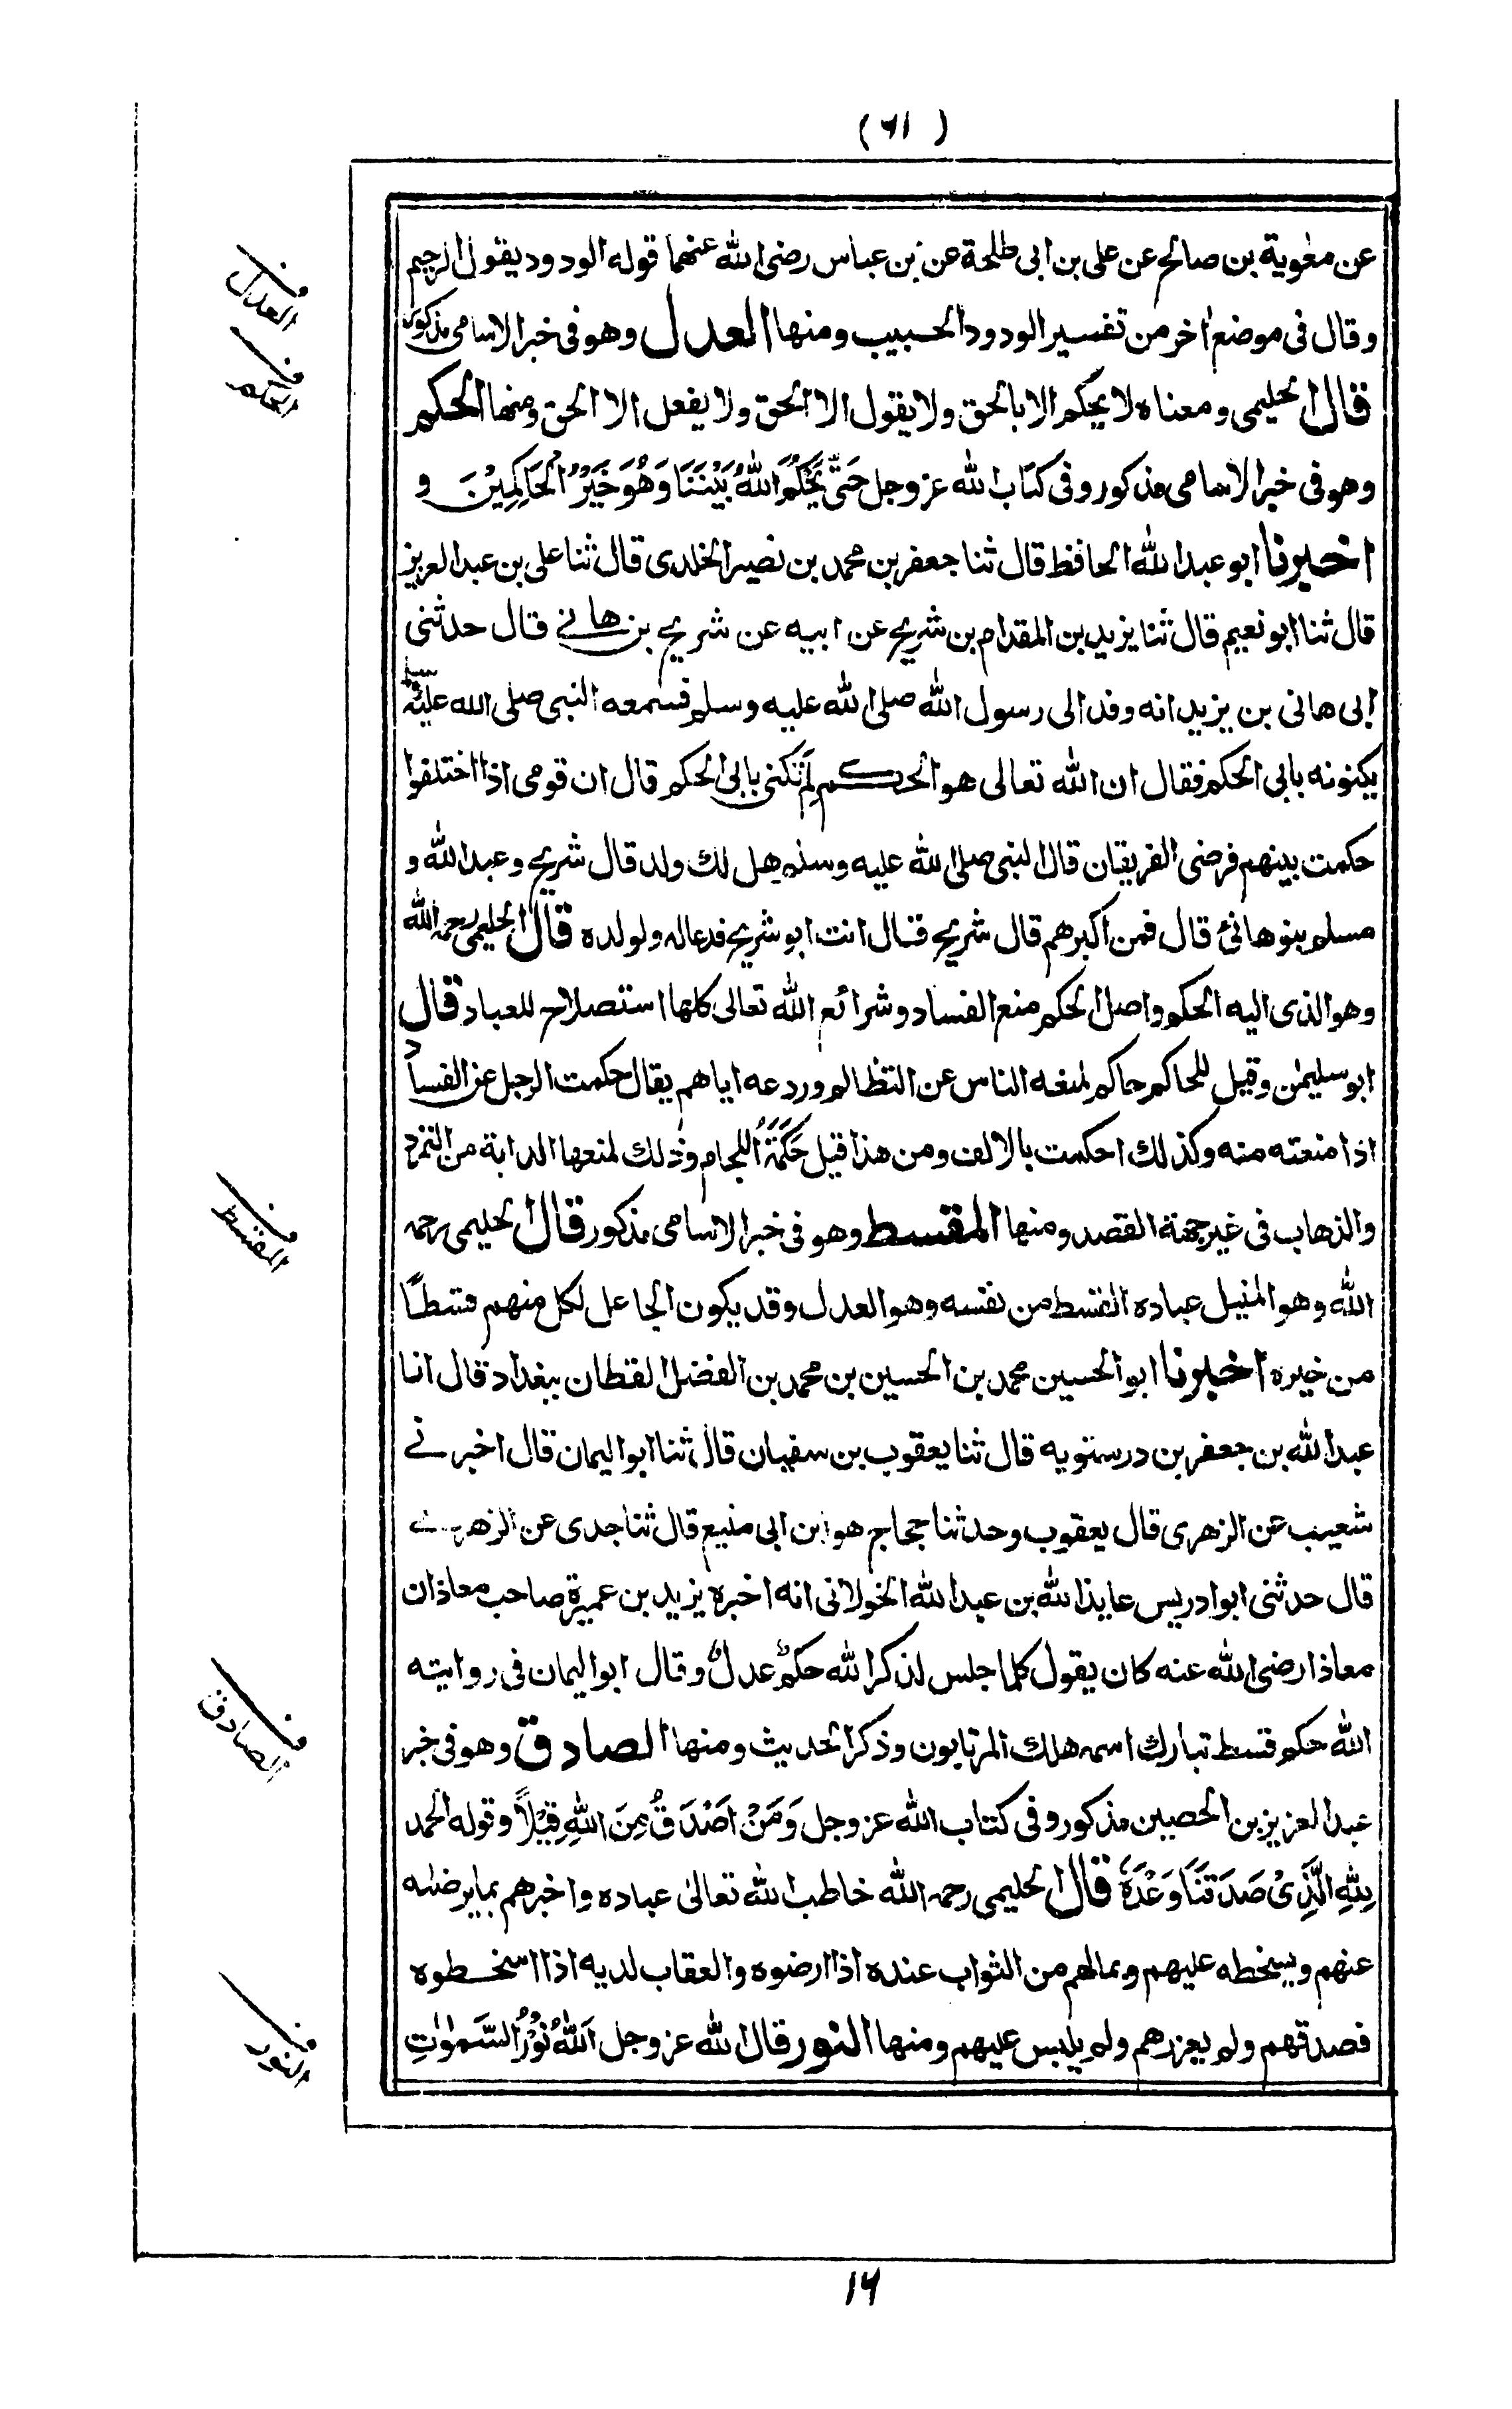 (٦١)
عن معٰوية بن صالح عن على بن ابى طلحة عن بن عباس رضى الله عنهما قوله الودود يقول الرحيم
وقال فى موضع اٰخر من تفسير الودود الحبيب ومنها العدل وهو فى خبر الاسامى مذكور
قال الحليمى ومعناه لا يحكم الا بالحق ولا يقول الا الحق ولا يفعل الا الحق ومنها الحكم
وهو فى خبر الاسامى مذكور وفى كتاب الله عز وجل حَتّٰى يَحْكُمَ اللهُ بَيْنَنَا وَهُوَ خَيْرُ الْحَاكِمِيْنَ و
اخبرنا ابو عبد الله الحافظ قال ثنا جعفر بن محمد بن نصير الخلدى قال ثنا على بن عبد العزيز
قال ثنا ابو نعيم قال ثنا يزيد بن المقدام بن شريح عن ابيه عن شريح بن هانے قال حدثنى
ابى هانى بن يزيد انه وفد الى رسول الله صلى الله عليه وسلم فسمعه النبى صلى الله عليه وسلم
يكنونه بابى الحكم فقال ان الله تعالى هو الحكم لِمَ تكنى بابى الحكم قال ان قومى اذا اختلفوا
حكمت بينهم فرضى الفريقان قال النبى صلى الله عليه وسلم هل لك ولد قال شريح وعبد الله و
مسلم بنو هانئ قال فمن اكبرهم قال شريح قال انت ابو شريح فدعا له ولولده قال الحليمى رحمه الله
وهو الذى اليه الحكم واصل الحكم منع الفساد وشرائع الله تعالى كلها استصلاح للعباد قال
ابو سليمٰن وقيل للحاكم حاكم لمنعه الناس عن التظالم وردعه اياهم يقال حكمت الرجل عن الفساد
اذا منعته منه وكذلك احكمت بالالف ومن هذا قيل حَكَمَةُ اللجام وذلك لمنعها الدابة من التمرد
والذهاب فى غير جهة القصد ومنها المقسط وهو فى خبر الاسامى مذكور قال الحليمى رحمه
الله وهو المنيل عباده القسط من نفسه وهو العدل وقد يكون الجاعل لكل منهم قسطًا
من خيره اخبرنا ابو الحسين محمد بن الحسين بن محمد بن الفضل القطان ببغداد قال انا
عبد الله بن جعفر بن درستويه قال ثنا يعقوب بن سفيان قال ثنا ابو اليمان قال اخبرنے
شعيب عن الزهرى قال يعقوب وحدثنا حجاج هو ابن ابى منيع قال ثنا جدى عن الزهرے
قال حدثنى ابو ادريس عايذ الله بن عبد الله الخولانى انه اخبره يزيد بن عميرة صاحب معاذ ان
معاذا رضى الله عنه كان يقول كلما جلس لذكر الله حكمٌ عدلٌ وقال ابو اليمان فى روايته
الله حكم قسط تبارك اسمه هلك المرتابون وذكر الحديث ومنها الصادق وهو فى خبر
عبد العزيز بن الحصين مذكور وفى كتاب الله عز وجل وَمَنْ اَصْدَقُ مِنَ اللهِ قِيْلًا وقوله الحمد
لِلّٰهِ الَّذِىْ صَدَقَنَا وَعْدَهٗ قال الحليمى رحمه الله خاطب الله تعالىٰ عباده واخبرهم بما يرضيه
عنهم ويسخطه عليهم وبما لهم من الثواب عنده اذا ارضوه والعقاب لديه اذا اسخطوه
فصدقهم ولم يعزرهم ولم يلبس عليهم ومنها النور قال الله عز وجل اَللهُ نُوْرُ السَّمٰوٰتِ
العدل
الحكم
المقسط
الصادق
النور
١٦